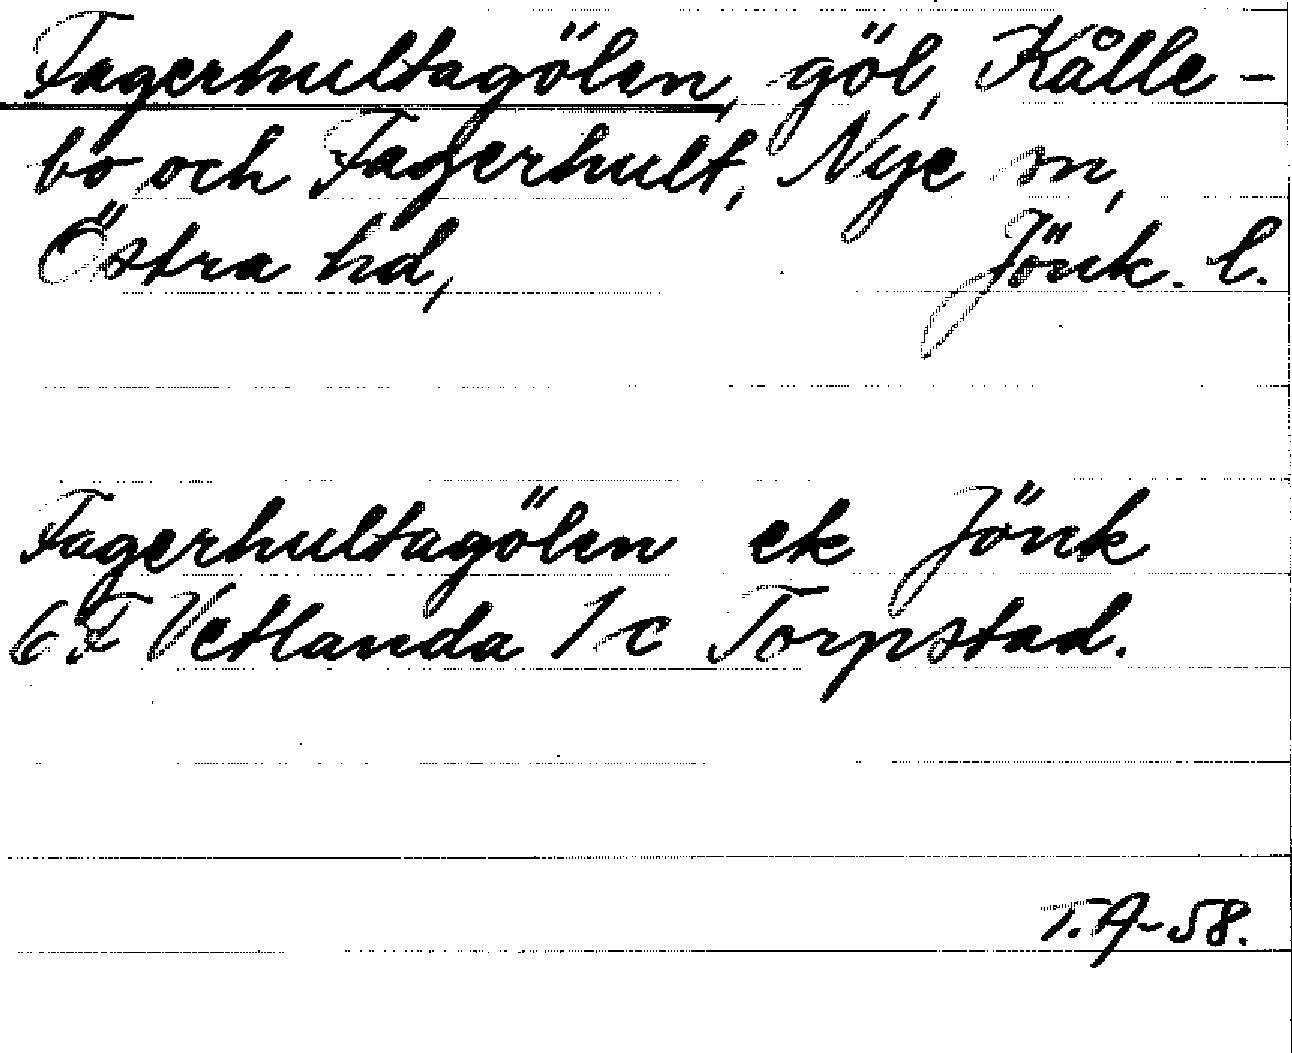 Fagerhultagölen, göl, Kålle-
bo och Fagerhult, Nye sn,
Östra hd, Jönk. l.
Fagerhultagölen ek Jönk
6 F Vetlanda 1 c Torpstad.
T.A-58.